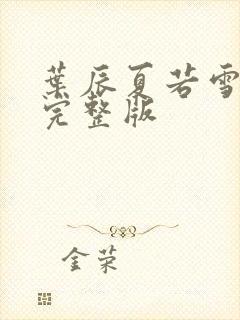 葉辰夏若雪
完整版
金荣